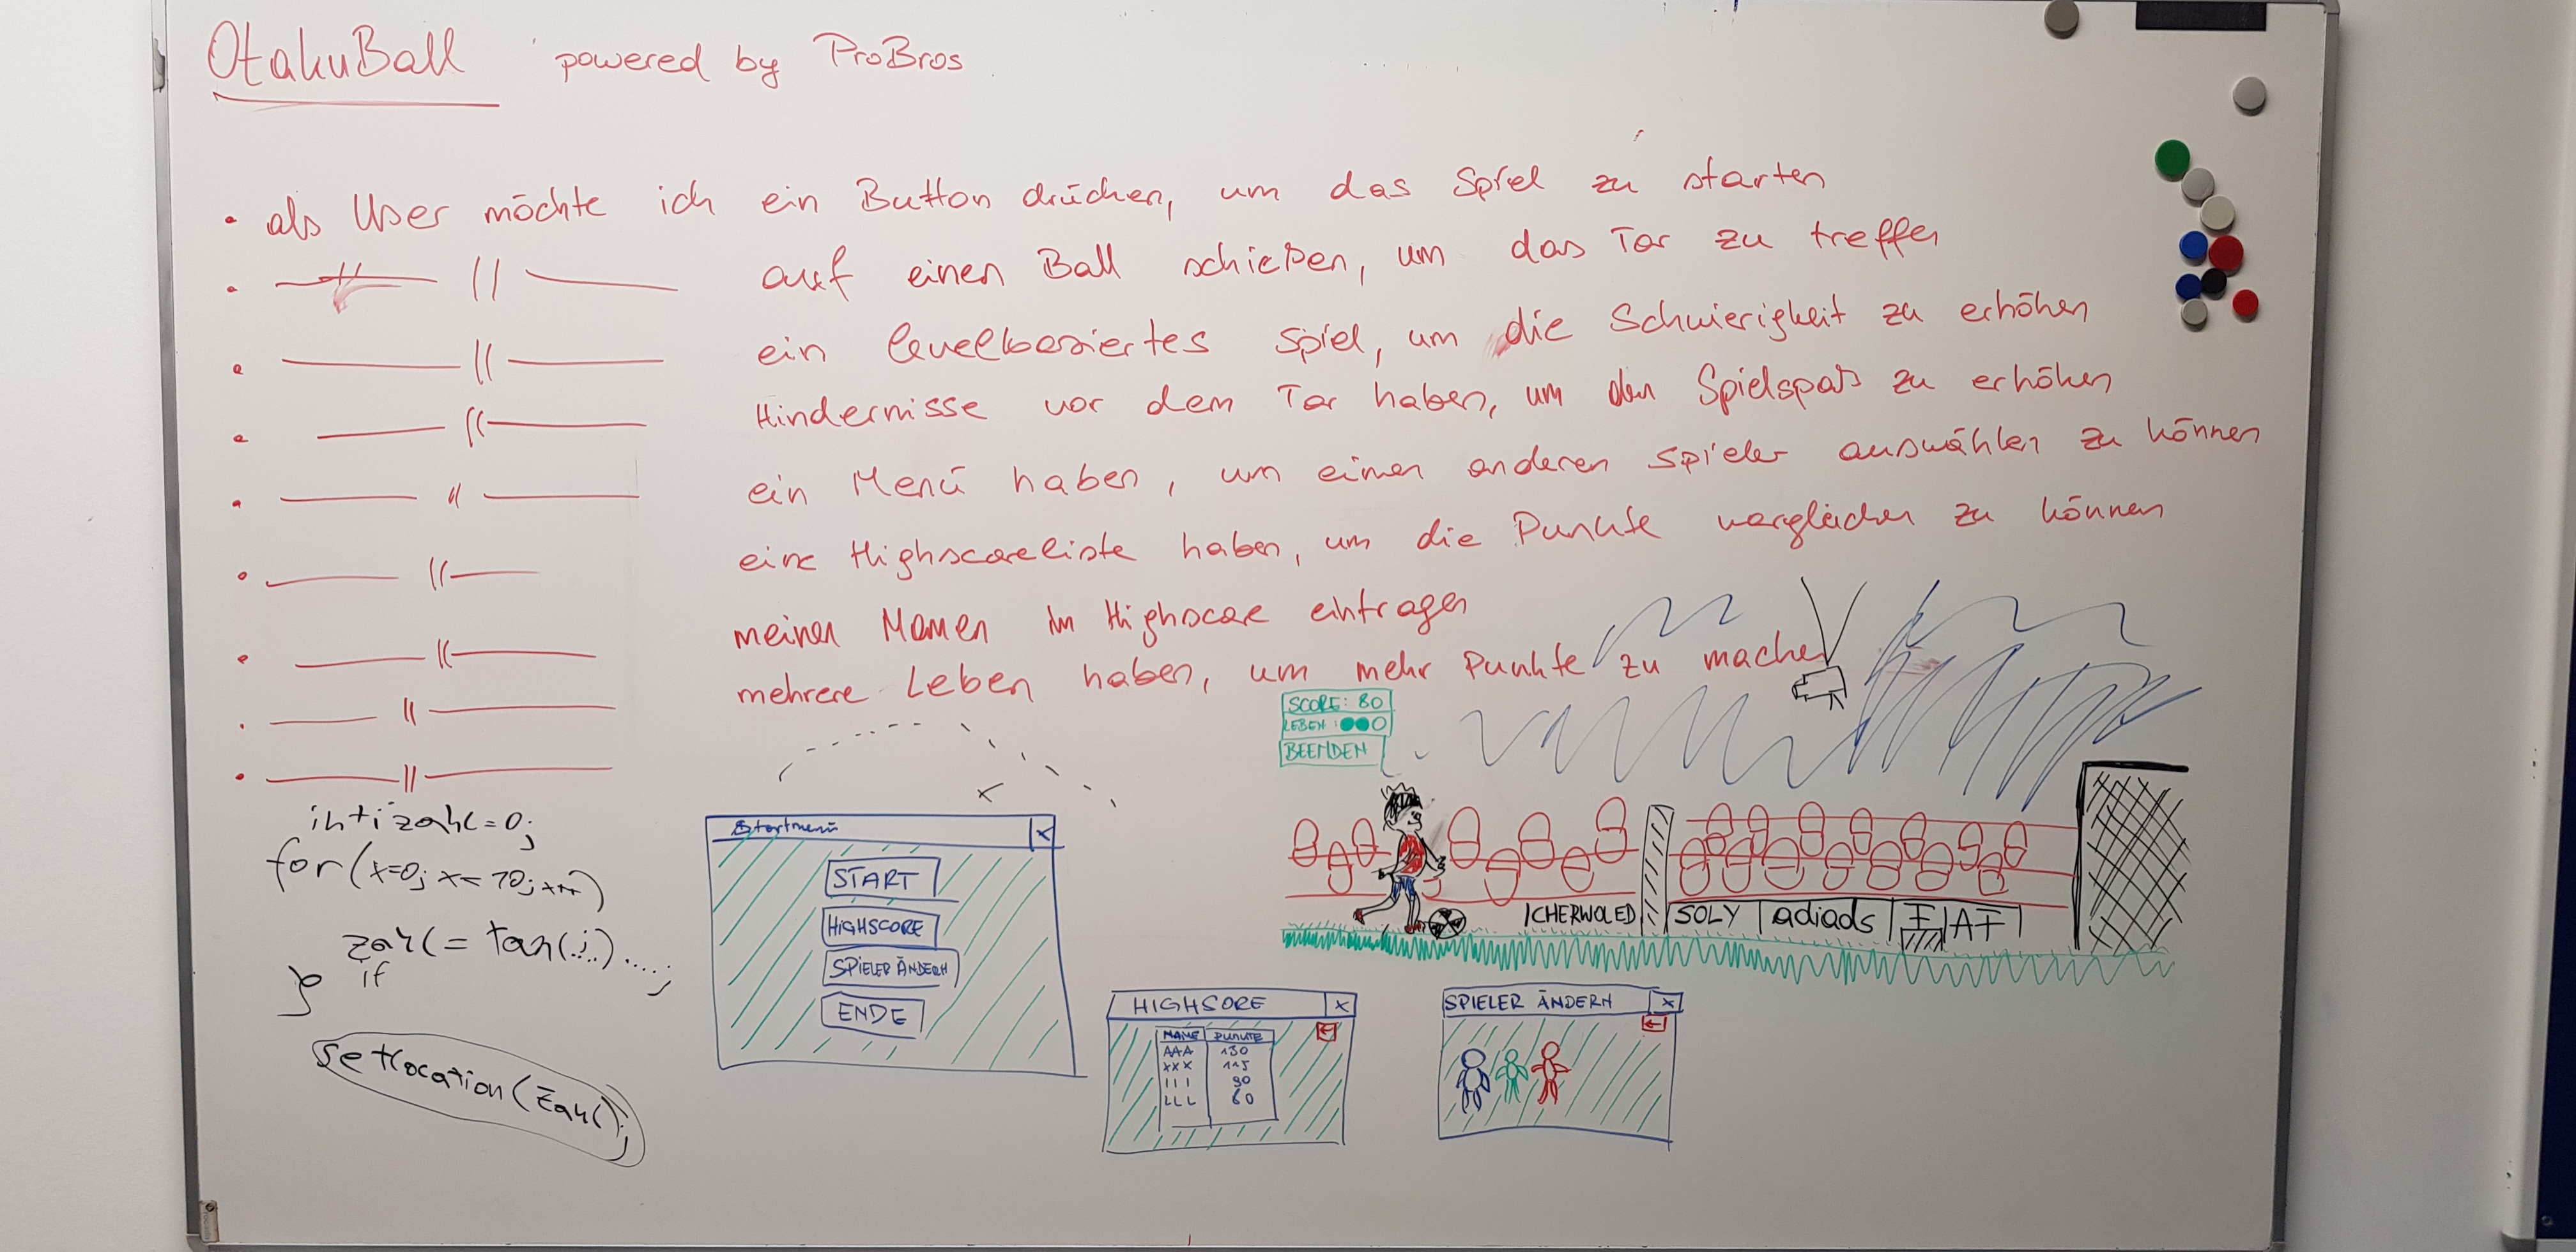 OtakuBall powered by ProBros
• als User möchte ich ein Button drücken, um das Spiel zu starten
• — || — auf einen Ball schießen, um das Tor zu treffen
• — || — ein levelbasiertes Spiel, um die Schwierigkeit zu erhöhen
• — || — Hindernisse vor dem Tor haben, um den Spielspaß zu erhöhen
• — || — ein Menü haben, um einen anderen Spieler auswählen zu können
• — || — eine Highscoreliste haben, um die Punkte vergleichen zu können
• — || — meinen Namen im Highscore eintragen
• — || — mehrere Leben haben, um mehr Punkte zu machen
• — || —
int i zahl = 0;
for (x=0; x= 10; x++)
zahl = tan(i)....;
if
setlocation(Zahl);
Startmenü X
START
HIGHSCORE
SPIELER ÄNDERN
ENDE
SCORE: 80
LEBEN:
BEENDEN
CHERWOLED SOLY adiads F AF
HIGHSORE X
NAME PUNKTE
AAA 130
XXX 115
III 90
LLL 60
SPIELER ÄNDERN X